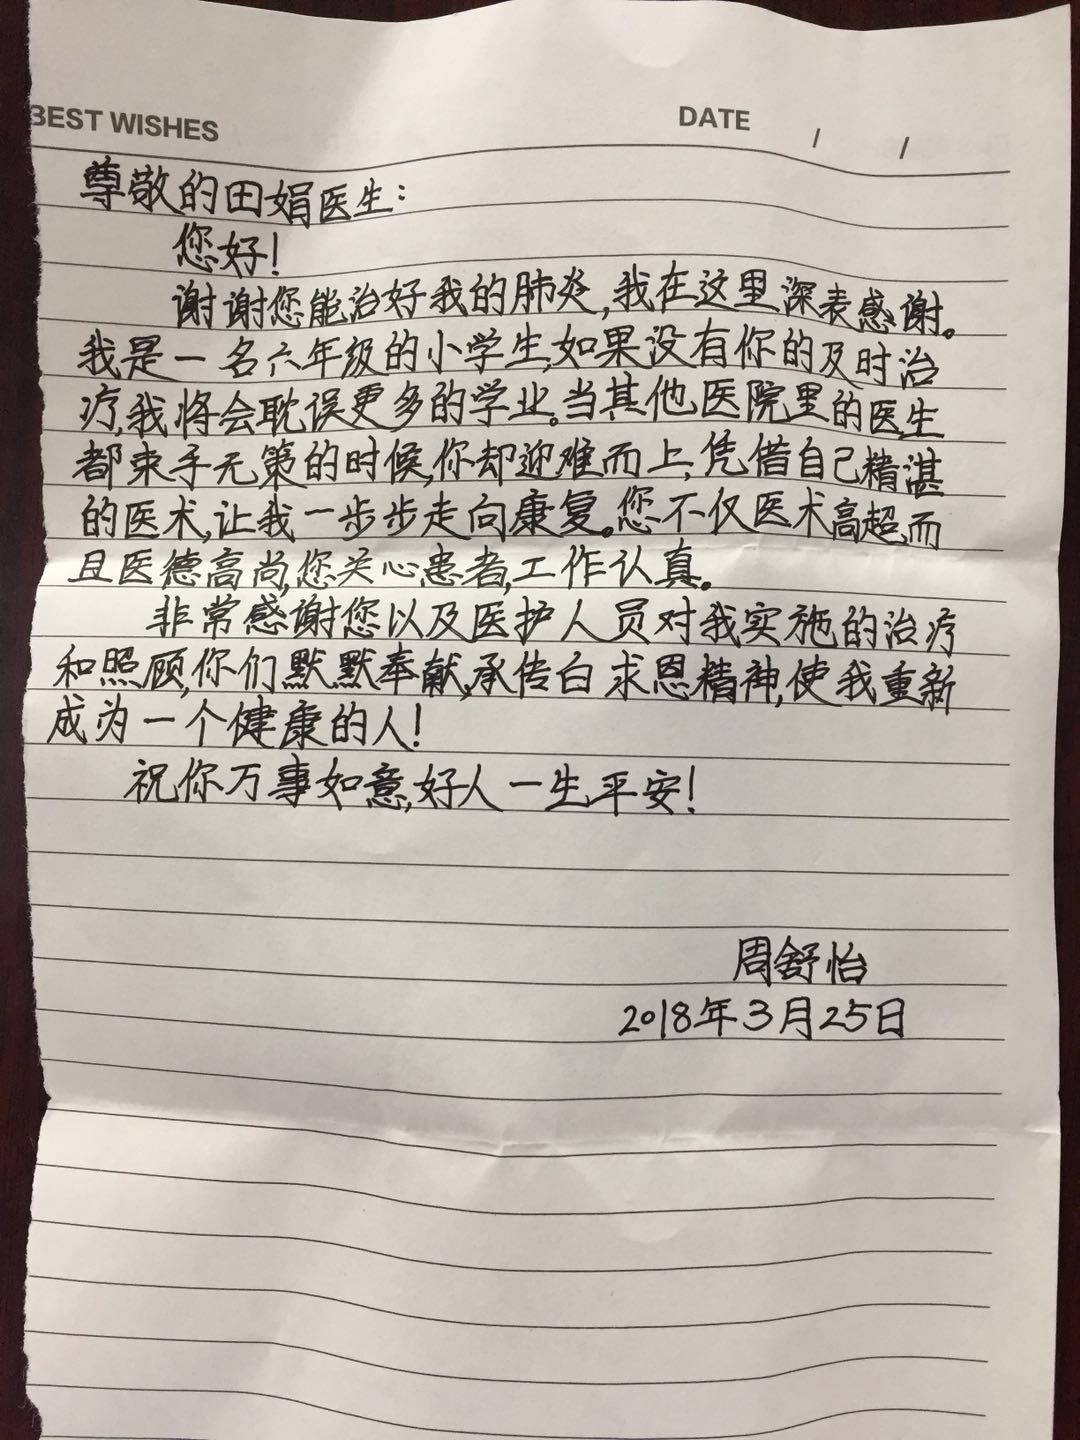 BEST WISHES
DATE / /
尊敬的田娟医生:
您好!
谢谢您能治好我的肺炎,我在这里深表感谢。
我是一名六年级的小学生,如果没有你的及时治
疗,我将会耽误更多的学业。当其他医院里的医生
都束手无策的时候,你却迎难而上,凭借自己精湛
的医术,让我一步步走向康复。您不仅医术高超,而
且医德高尚,您关心患者,工作认真。
非常感谢您以及医护人员对我实施的治疗
和照顾,你们默默奉献,承传白求恩精神,使我重新
成为一个健康的人!
祝你万事如意,好人一生平安!
周舒怡
2018年3月25日